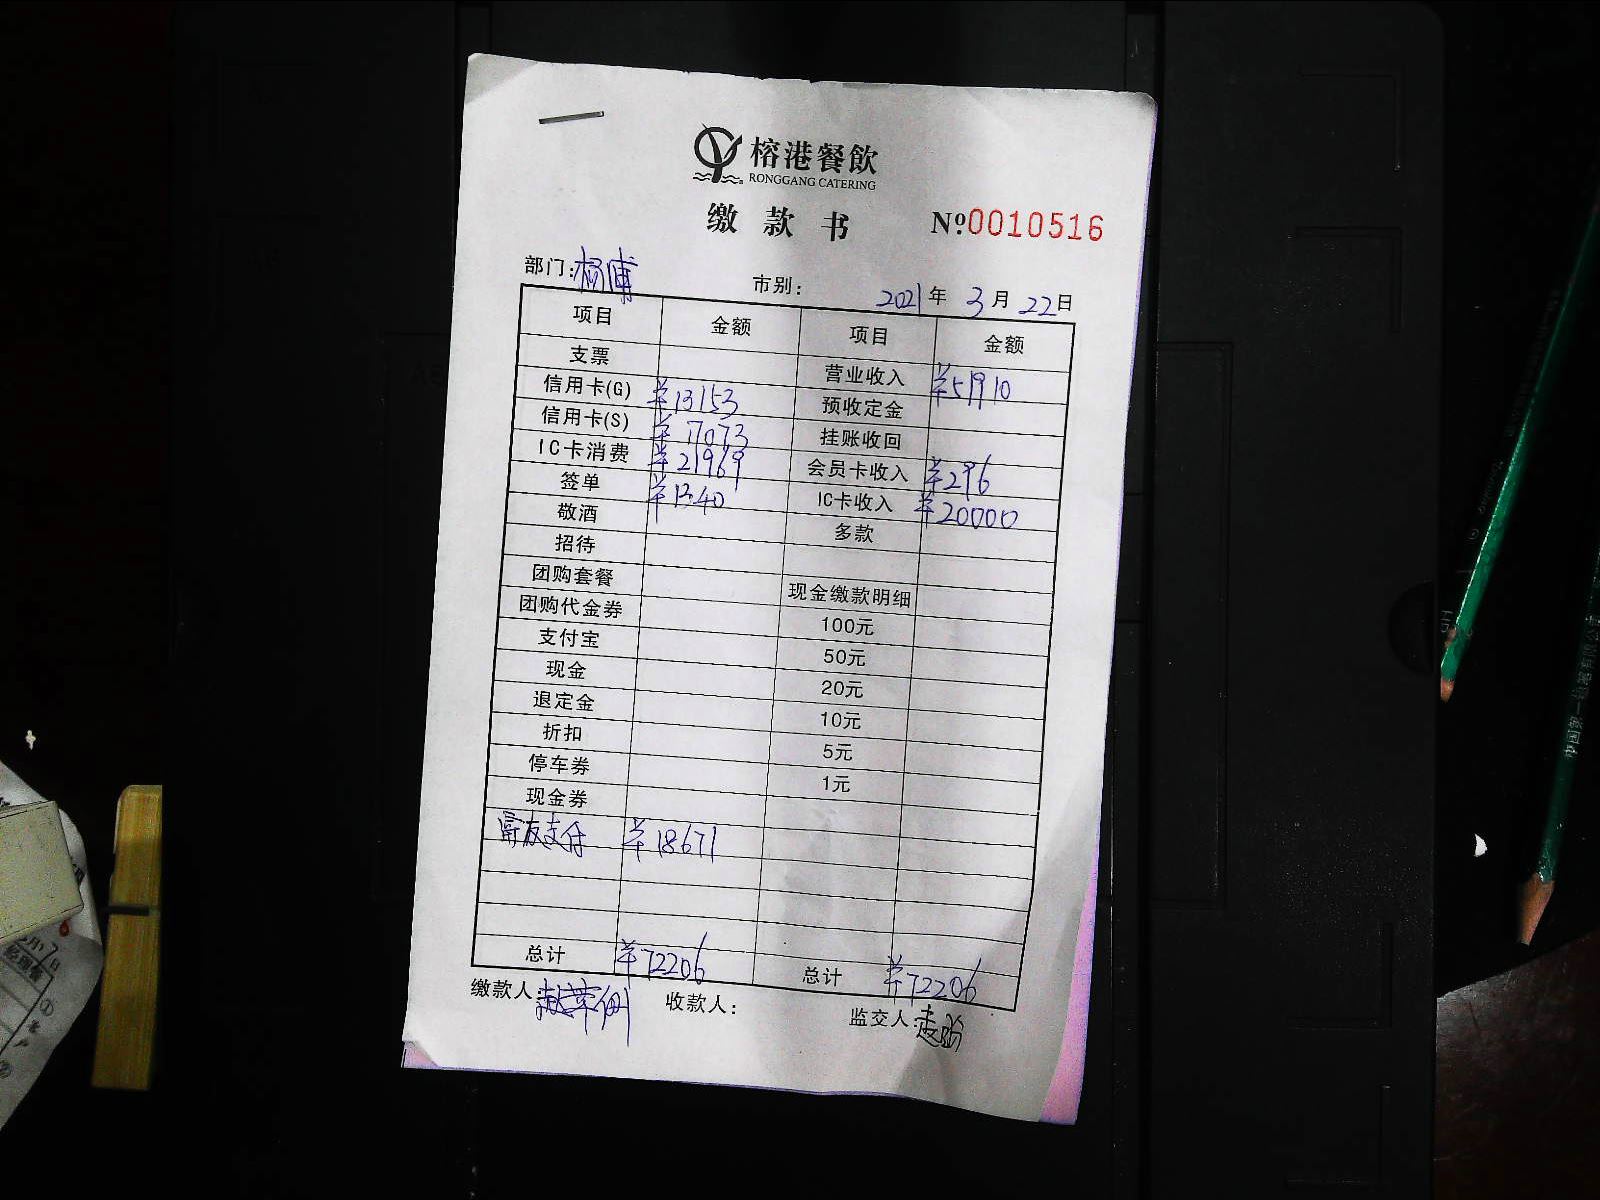 榕港餐飲
RONGGANG CATERING
缴款书 №0010516
部门: 市别: 2021年3月22日
项目 金额 项目 金额
支票 营业收入 ¥51910
信用卡(G) ¥13153 预收定金
信用卡(S) ¥17073 挂账收回
IC卡消费 ¥21969 会员卡收入 ¥296
签单 ¥1340 IC卡收入 ¥20000
敬酒 多款
招待
团购套餐 现金缴款明细
团购代金券 100元
支付宝 50元
现金 20元
退定金 10元
折扣 5元
停车券 1元
现金券
富友支付 ¥18671
总计 ¥72206 总计 ¥72206
缴款人: 收款人: 监交人: